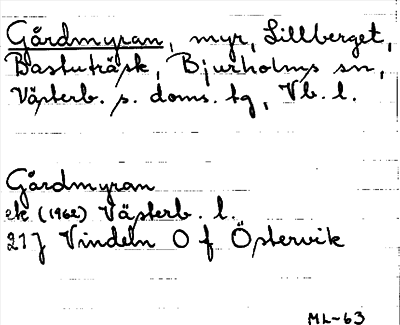 Gårdmyran, myr, Lillberget,
Bastuträsk, Bjurholms sn,
Västerb. s. doms. tg, Vb. l.
Gårdmyran
ek (1962) Västerb. l.
21J Vindeln O f Östervik
ML-63